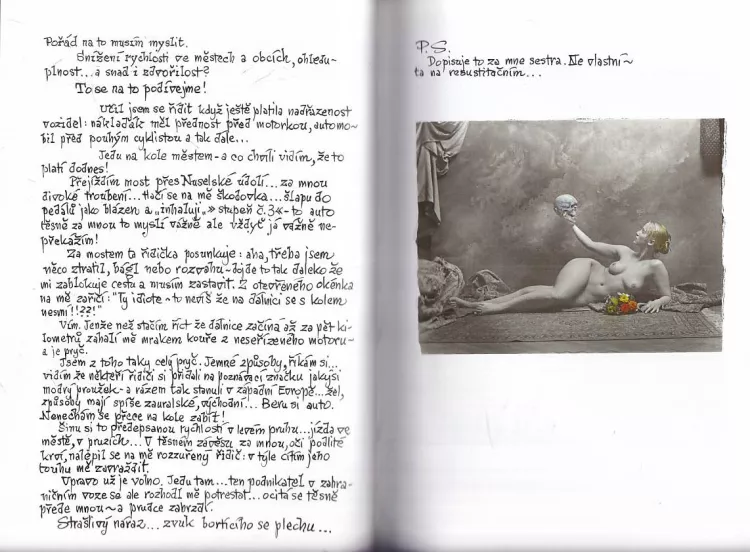 Pořád na to musím myslit.
Snížení rychlosti ve městech a obcích, ohledu-
plnost... a snad i zdvořilost?
To se na to podívejme!
Učil jsem se řídit když ještě platila nadřazenost
vozidel: náklaďák měl přednost před motorkou, automo-
bil před pouhým cyklistou a tak dále...
Jedu na kole městem - a co chvíli vidím, že to
platí dodnes!
Přejíždím most přes Nuselské údolí... za mnou
divoké troubení... tlačí se na mě škodovka... šlapu do
pedálů jako blázen a „inhaluji" stupeň č. 3 - to auto
těsně za mnou to myslí vážně ale vždyť já vážně ne-
překážím!
Za mostem ta řidička posunkuje: aha, třeba jsem
něco ztratil, bagl nebo rozvahu - dojde to tak daleko že
mi zablokuje cestu a musím zastavit. Z otevřeného okénka
na mě zařičí: "Ty idiote - to nevíš že na dálnici se s kolem
nesmí!!??!"
Vím. Jenže než stačím říct že dálnice začíná až za pět ki-
lometrů zahalí mě mrakem kouře z neseřízeného motoru -
a je pryč.
Jsem z toho taky celý pryč. Jemné způsoby, říkám si...
vidím že někteří řidiči si přidali na poznávací značku jakýsi
modrý proužek - a rázem tak stanuli v západní Evropě... žel,
způsoby mají spíše zauralské, východní... Beru si auto.
Nenechám se přece na kole zabít!
Šinu si to předepsanou rychlostí v levém pruhu... jízda ve
městě, v pruzích... V těsném závěsu za mnou, oči podlité
krví, nalepil se na mě rozzuřený řidič: v týle cítím jeho
touhu mě zavraždit.
Vpravo už je volno. Jedu tam... ten podnikatel v zahra-
ničním voze se ale rozhodl mě potrestat... ocitá se těsně
přede mnou ~ a prudce zabrzdí.
Strašlivý náraz... zvuk bortícího se plechu...
P.S.
Dopisuje to za mne sestra. Ne vlastní ~
ta na resustitačním...